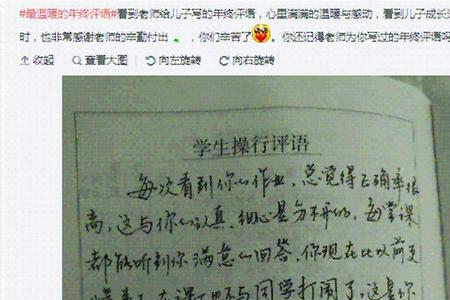 #最温暖的年终评语#看到老师给儿子写的年终评语，心里满满的温暖与感动，看到儿子成长
时，也非常感谢老师的辛勤付出，你们辛苦了。你还记得老师为你写过的年终评语吗
收起 查看大图 向左旋转 向右旋转
学生操行评语
每次看到你的作业，总觉得正确率很
高，这与你的认真、细心是分不开的，每堂课
都能听到你满意的回答，你现在比以前更
与同学打闹了，这是你